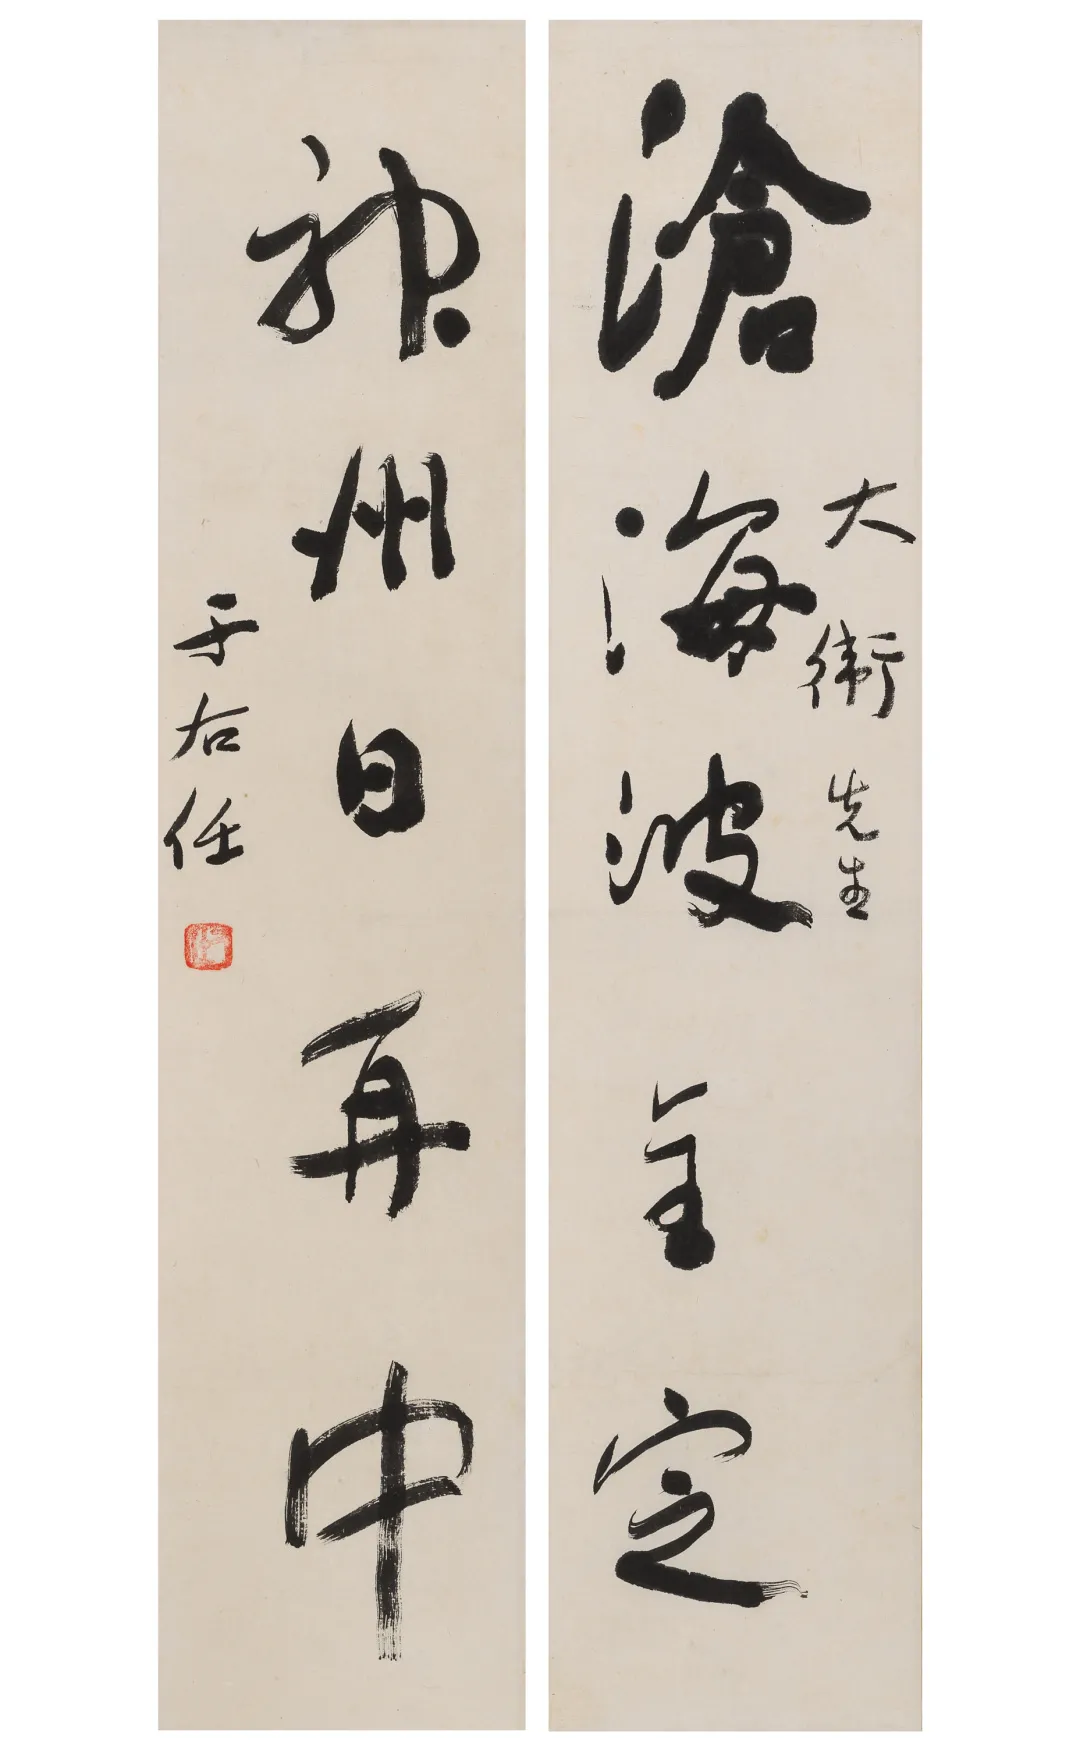 滄海波全定
大衛先生
神州日再中
于右任